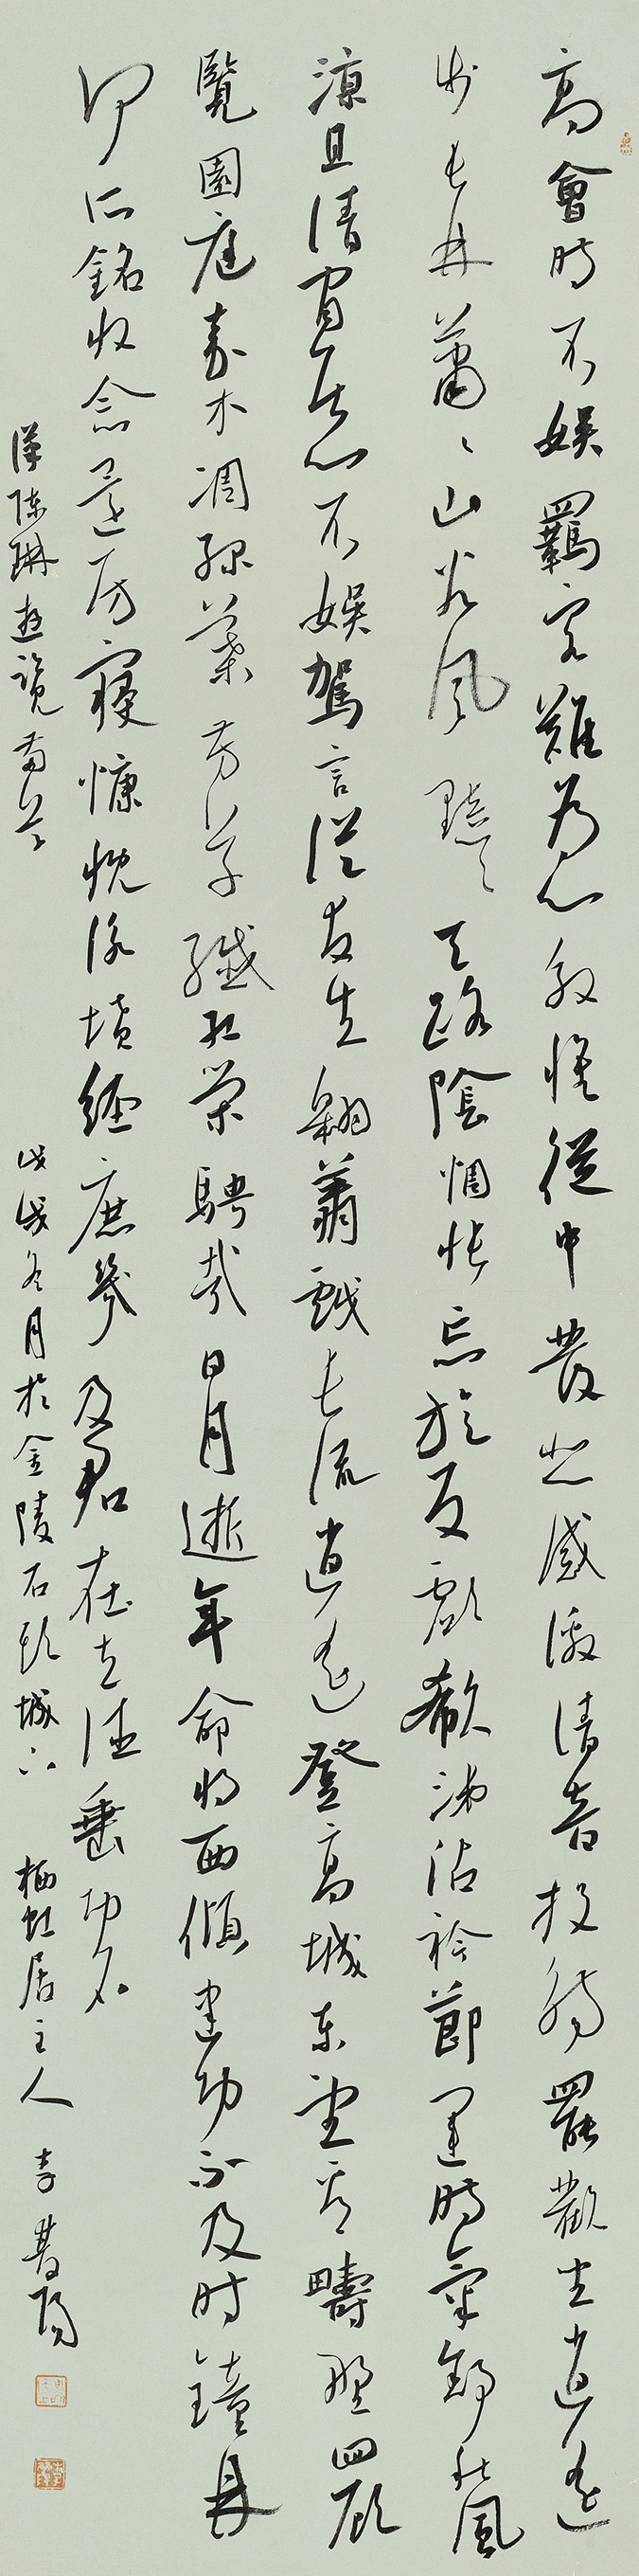 高會時不娛羈客難為心殷懷從中發悲感激清音投觴罷歡坐逍遙
步長林蕭々山谷風黯々天路陰惆悵忘旋反歔欷涕沾襟節運時氣舒秋風
涼且清閒居心不娛駕言從友生翱翔戲長流逍遙登高城東望看疇野四顧
覽園庭嘉木凋綠葉芳草纖紅榮騁哉日月逝年命將西傾建功不及時鐘鼎
何所銘收念還房寢慷慨詠墳經庶幾及君在立德垂功名
漢陳琳遊覽兩首 戊戌冬月於金陵石頭城下 栖虹居主人 李陽